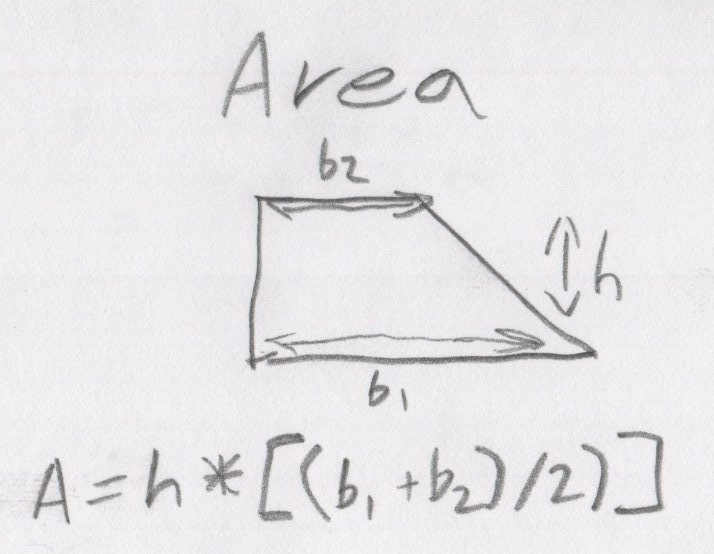 Area
b2
h
b1
A = h * [(b1 + b2)/2)]